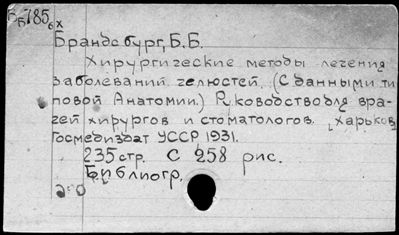 Б785
Брандсбург, Б.Б.
Хирургические методы лечения
заболеваний челюстей. (С данными ти
повой Анатомии.) Руководство для вра-
чей хирургов и стоматологов. [Харьков]
Госмедиздат УССР, 1931.
235 стр. С 258 рис.
Библиогр.